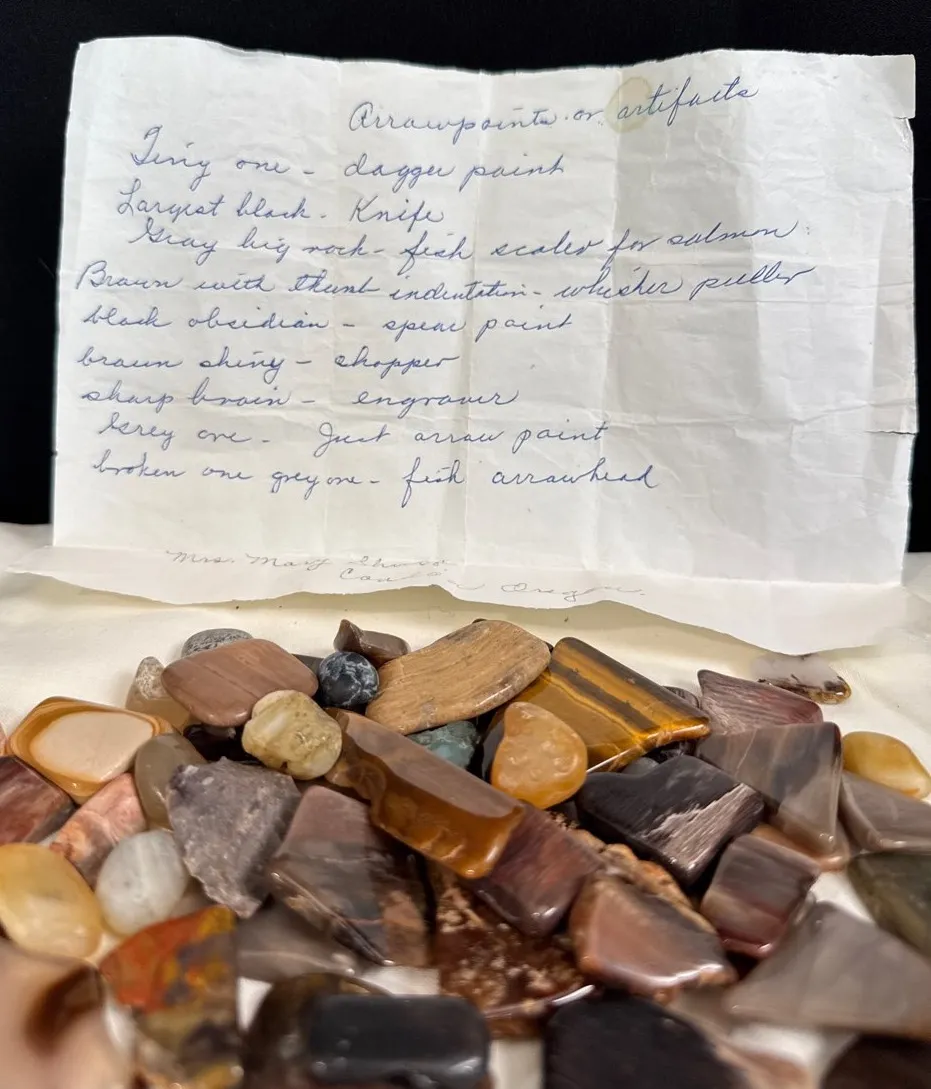 Arrowpoints or artifacts
Tiny one - dagger point
Largest black - Knife
Gray big rock - fish scaler for salmon
Brown with thumb indentation - whisker puller
black obsidian - spear point
brown shiny - chopper
sharp brown - engraver
Grey one - Just arrow point
broken one grey one - fish arrowhead
Mrs. Mary
Oregon